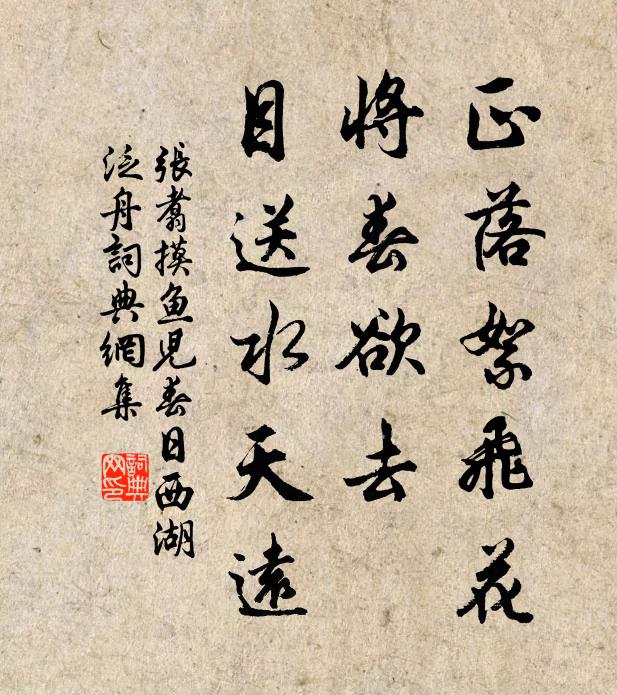 正落絮飛花
將春欲去
目送水天遠
張翥摸魚児春日西湖
泛舟詞典網集
詞典
网印